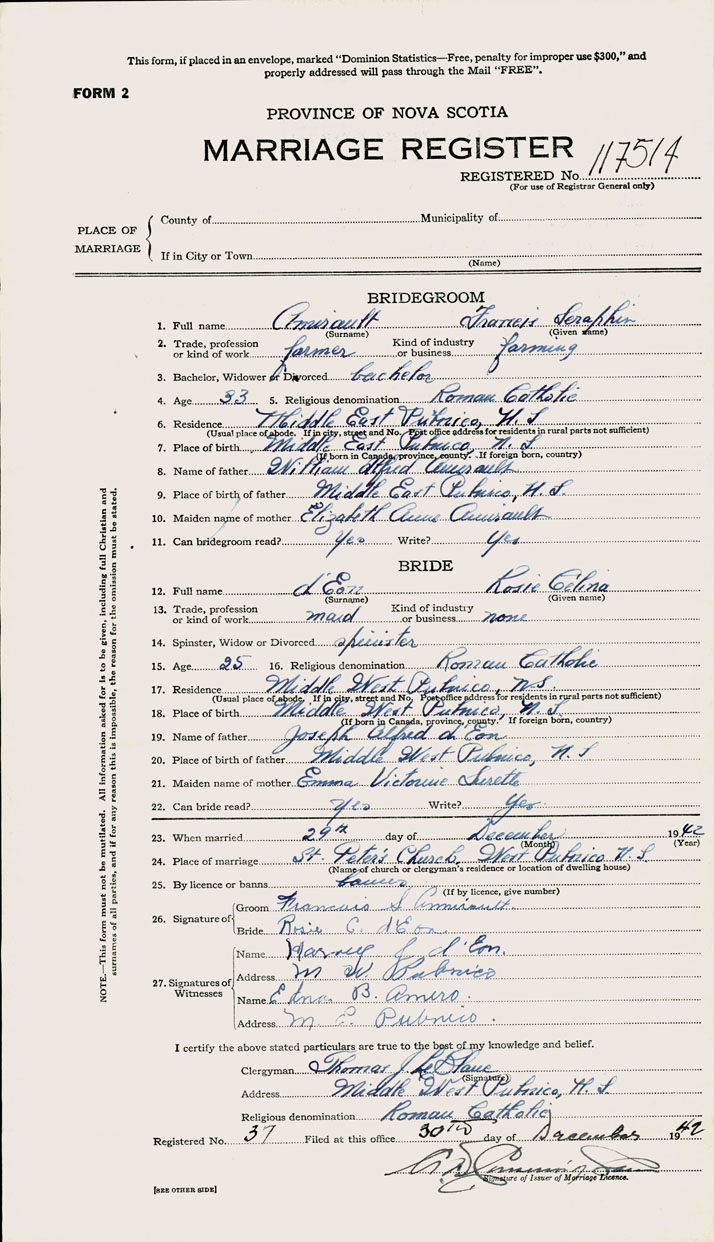 This form, if placed in an envelope, marked "Dominion Statistics—Free, penalty for improper use $300," and
properly addressed will pass through the Mail "FREE".
FORM 2
PROVINCE OF NOVA SCOTIA
MARRIAGE REGISTER
REGISTERED No. 117514
(For use of Registrar General only)
PLACE OF MARRIAGE
County of Municipality of
If in City or Town
(Name)
BRIDEGROOM
1. Full name Amirault Francis Seraphin
(Surname) (Given name)
2. Trade, profession or kind of work farmer Kind of industry or business farming
3. Bachelor, Widower or Divorced bachelor
4. Age 33 5. Religious denomination Roman Catholic
6. Residence Middle East Pubnico, N.S
(Usual place of abode. If in city, street and No. Post office address for residents in rural parts not sufficient)
7. Place of birth Middle East Pubnico, N.S.
(If born in Canada, province, county. If foreign born, country)
8. Name of father William Alfred Amirault
9. Place of birth of father Middle East Pubnico, N.S.
10. Maiden name of mother Elizabeth Anne Amirault
11. Can bridegroom read? Yes Write? Yes
BRIDE
12. Full name d'Eon Rosie Célina
(Surname) (Given name)
13. Trade, profession or kind of work maid Kind of industry or business none
14. Spinster, Widow or Divorced spinster
15. Age 25 16. Religious denomination Roman Catholic
17. Residence Middle West Pubnico, N.S
(Usual place of abode. If in city, street and No. Post office address for residents in rural parts not sufficient)
18. Place of birth Middle West Pubnico, N.S.
(If born in Canada, province, county. If foreign born, country)
19. Name of father Joseph Alfred d'Eon
20. Place of birth of father Middle West Pubnico, N.S
21. Maiden name of mother Emma Victorine Surette
22. Can bride read? Yes Write? Yes
23. When married 29th day of December 1942
(Month) (Year)
24. Place of marriage St. Peter's Church, West Pubnico N.S.
(Name of church or clergyman's residence or location of dwelling house)
25. By licence or banns banns
(If by licence, give number)
26. Signature of
Groom Francois S Amirault
Bride Rosie C. d'Eon
27. Signatures of Witnesses
Name Harvey J. d'Eon.
Address M W Pubnico
Name Edna B. Amero.
Address M E Pubnico.
I certify the above stated particulars are true to the best of my knowledge and belief.
Clergyman Thomas J. LeBlanc
(Signature)
Address Middle West Pubnico, N.S.
Religious denomination Roman Catholic
Registered No. 37 Filed at this office 30th day of December 1942
Signature of Issuer of Marriage Licence.
[SEE OTHER SIDE]
NOTE.—This form must not be mutilated. All information asked for is to be given, including full Christian and
surnames of all parties, and if for any reason this is impossible, the reason for the omission must be stated.